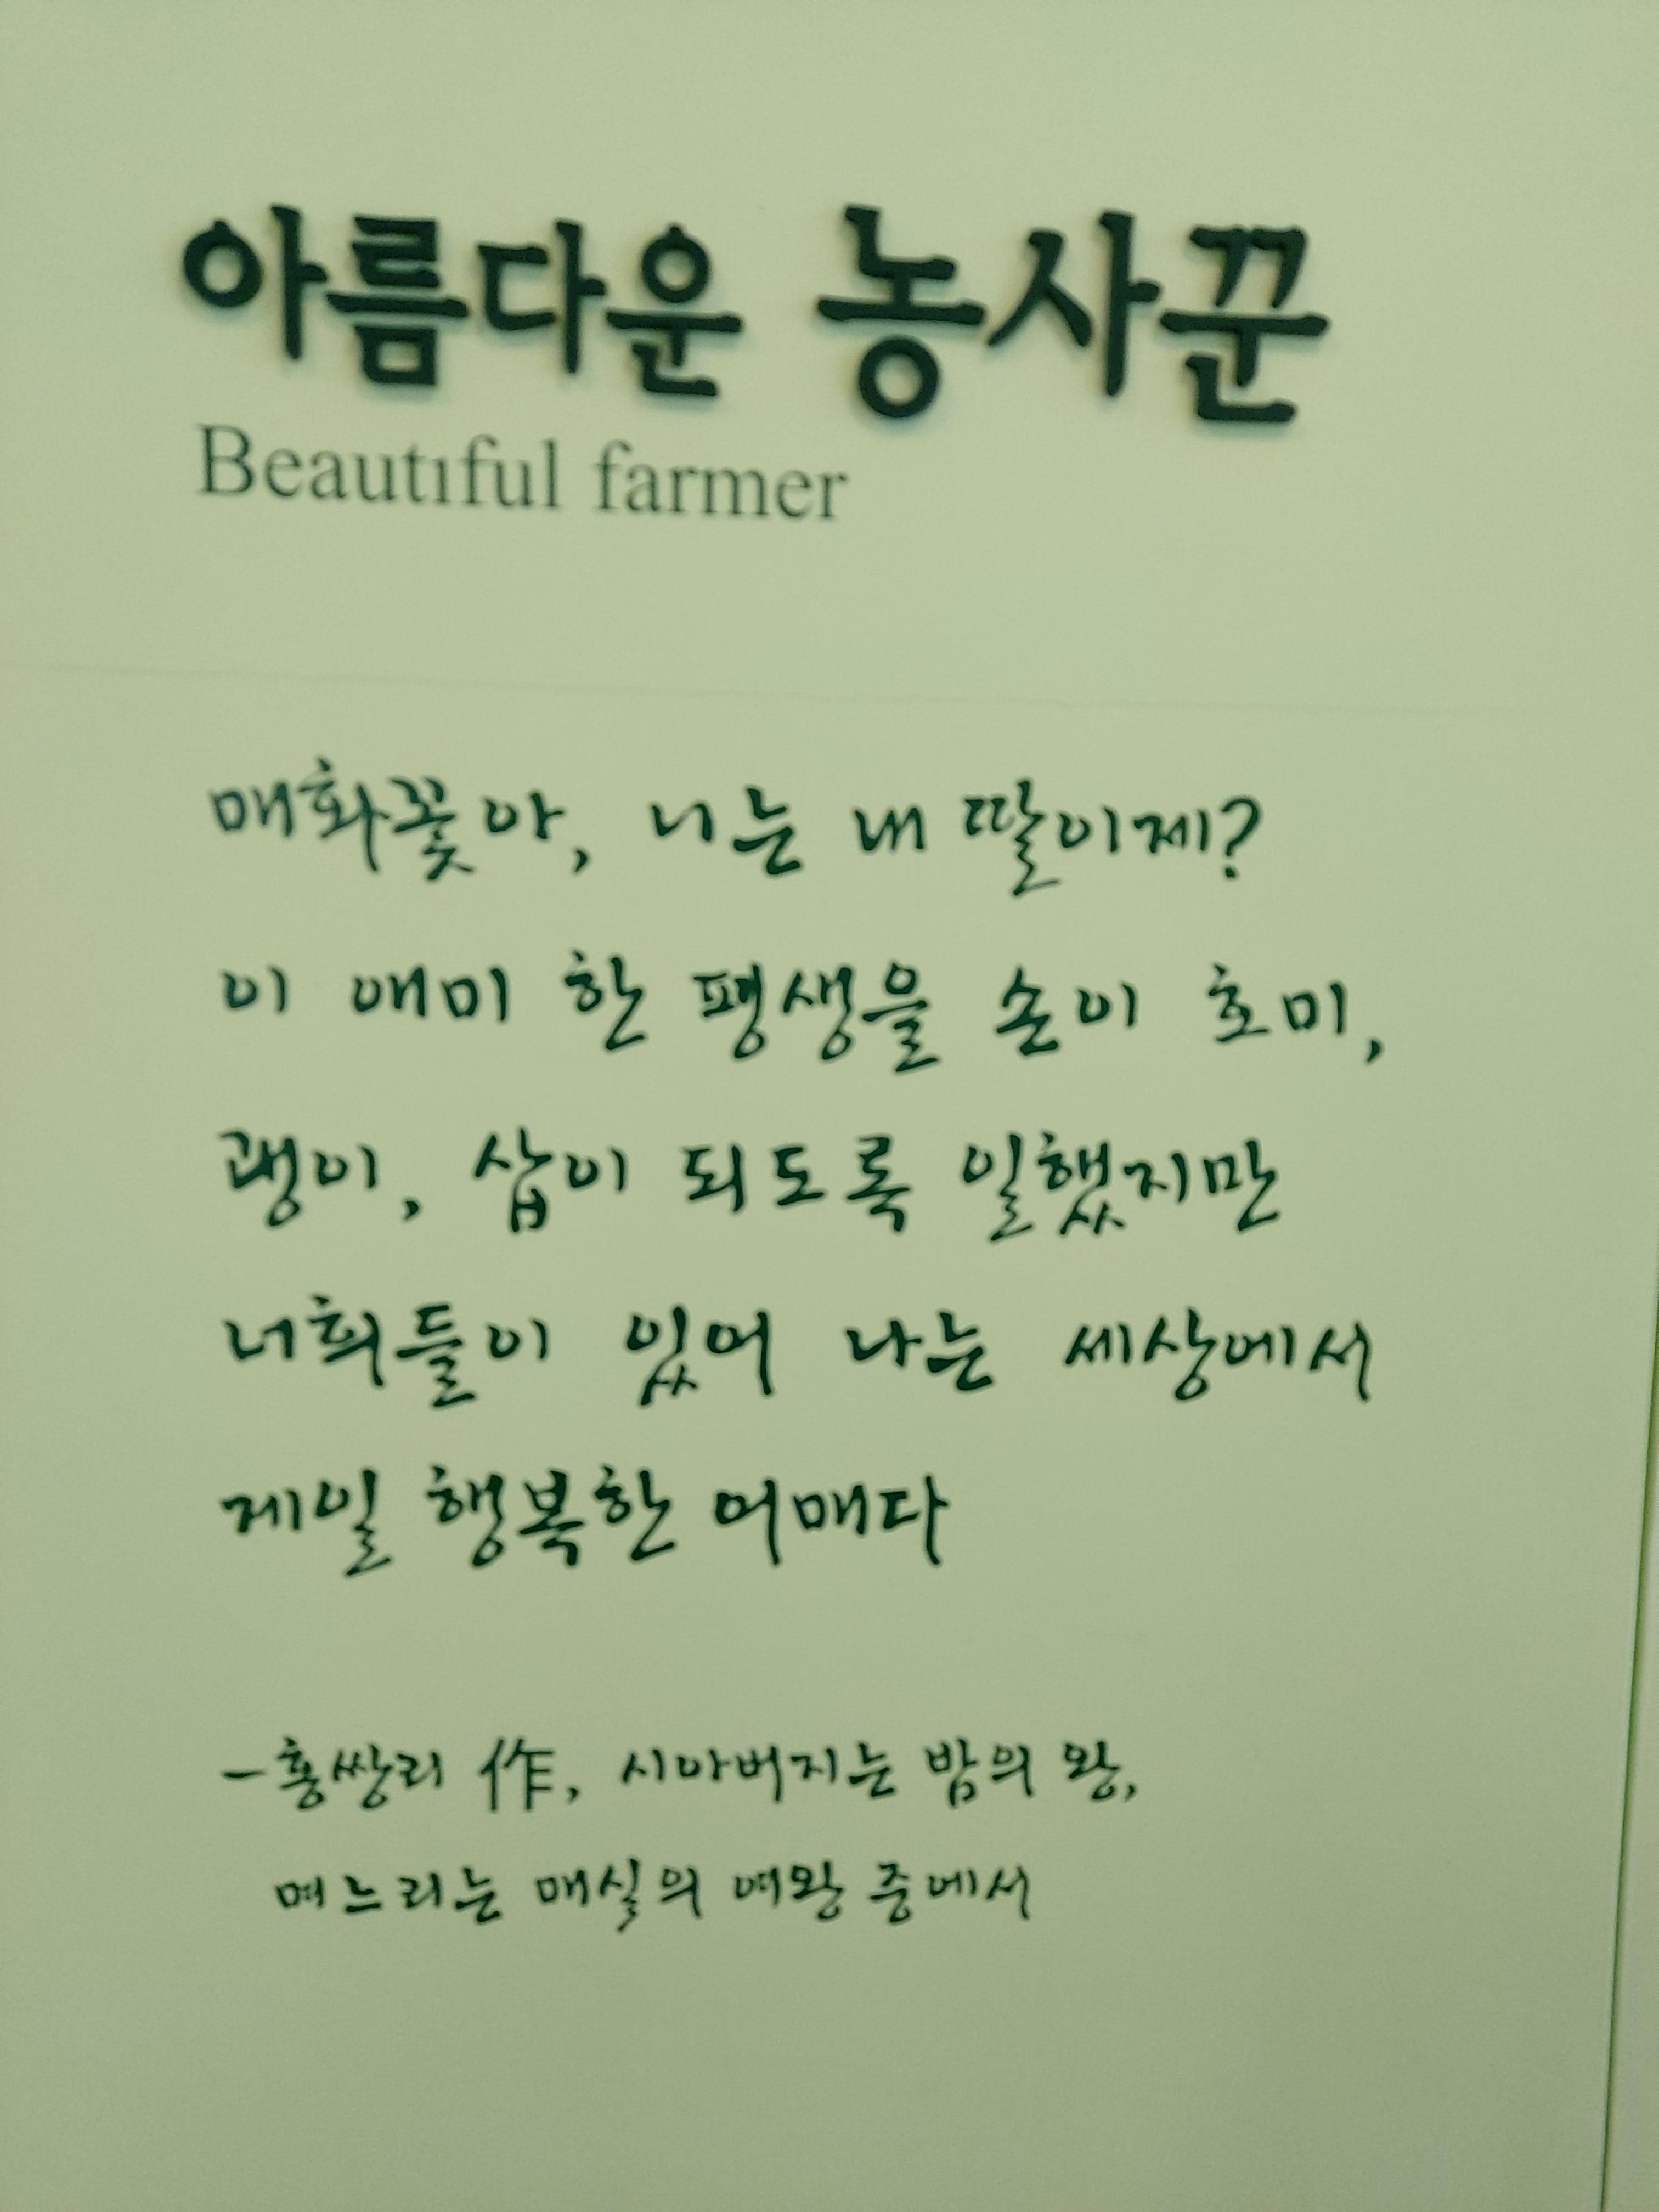 아름다운 농사꾼
Beautiful farmer
매화꽃아, 니는 내 딸이제?
이 애미 한 평생을 손이 호미,
괭이, 삽이 되도록 일했지만
너희들이 있어 나는 세상에서
제일 행복한 어매다
-홍쌍리 作, 시아버지는 밤의 왕,
며느리는 매실의 여왕 중에서